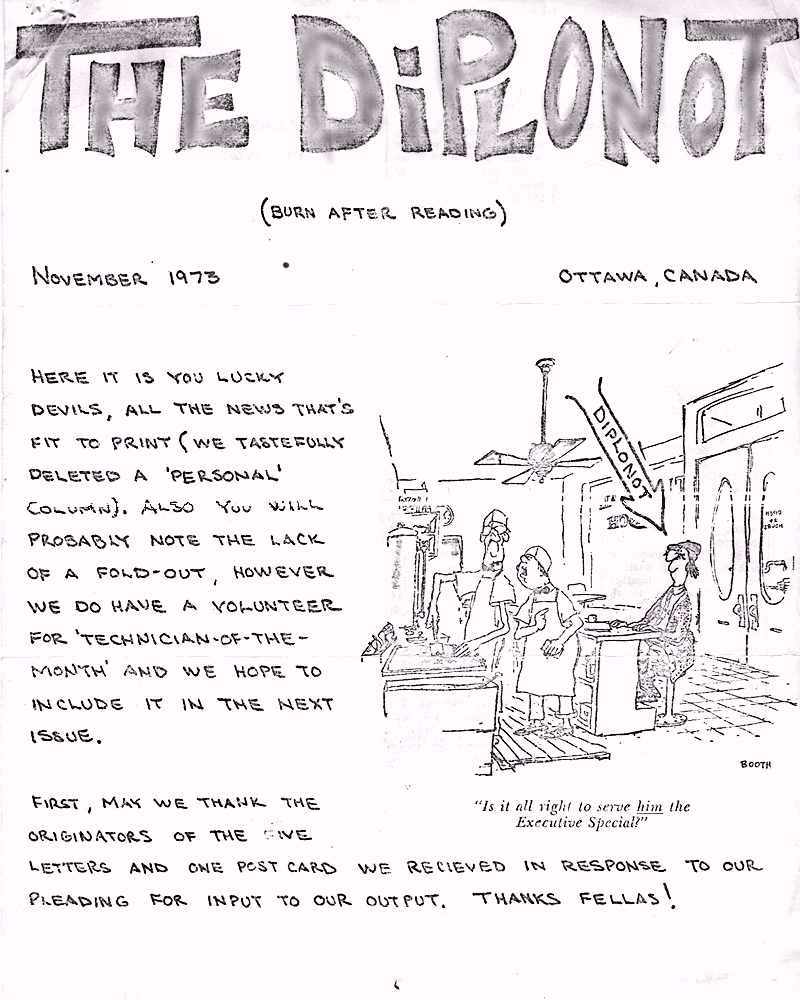 THE DiPLONOT
(BURN AFTER READING)
NOVEMBER 1973
OTTAWA, CANADA
HERE IT IS YOU LUCKY
DEVILS, ALL THE NEWS THAT'S
FIT TO PRINT (WE TASTEFULLY
DELETED A 'PERSONAL'
COLUMN). ALSO YOU WILL
PROBABLY NOTE THE LACK
OF A FOLD-OUT, HOWEVER
WE DO HAVE A VOLUNTEER
FOR 'TECHNICIAN-OF-THE-
MONTH' AND WE HOPE TO
INCLUDE IT IN THE NEXT
ISSUE.
DIPLONOT
BOOTH
"Is it all right to serve him the
Executive Special?"
FIRST, MAY WE THANK THE
ORIGINATORS OF THE FIVE
LETTERS AND ONE POST CARD WE RECIEVED IN RESPONSE TO OUR
PLEADING FOR INPUT TO OUR OUTPUT. THANKS FELLAS!